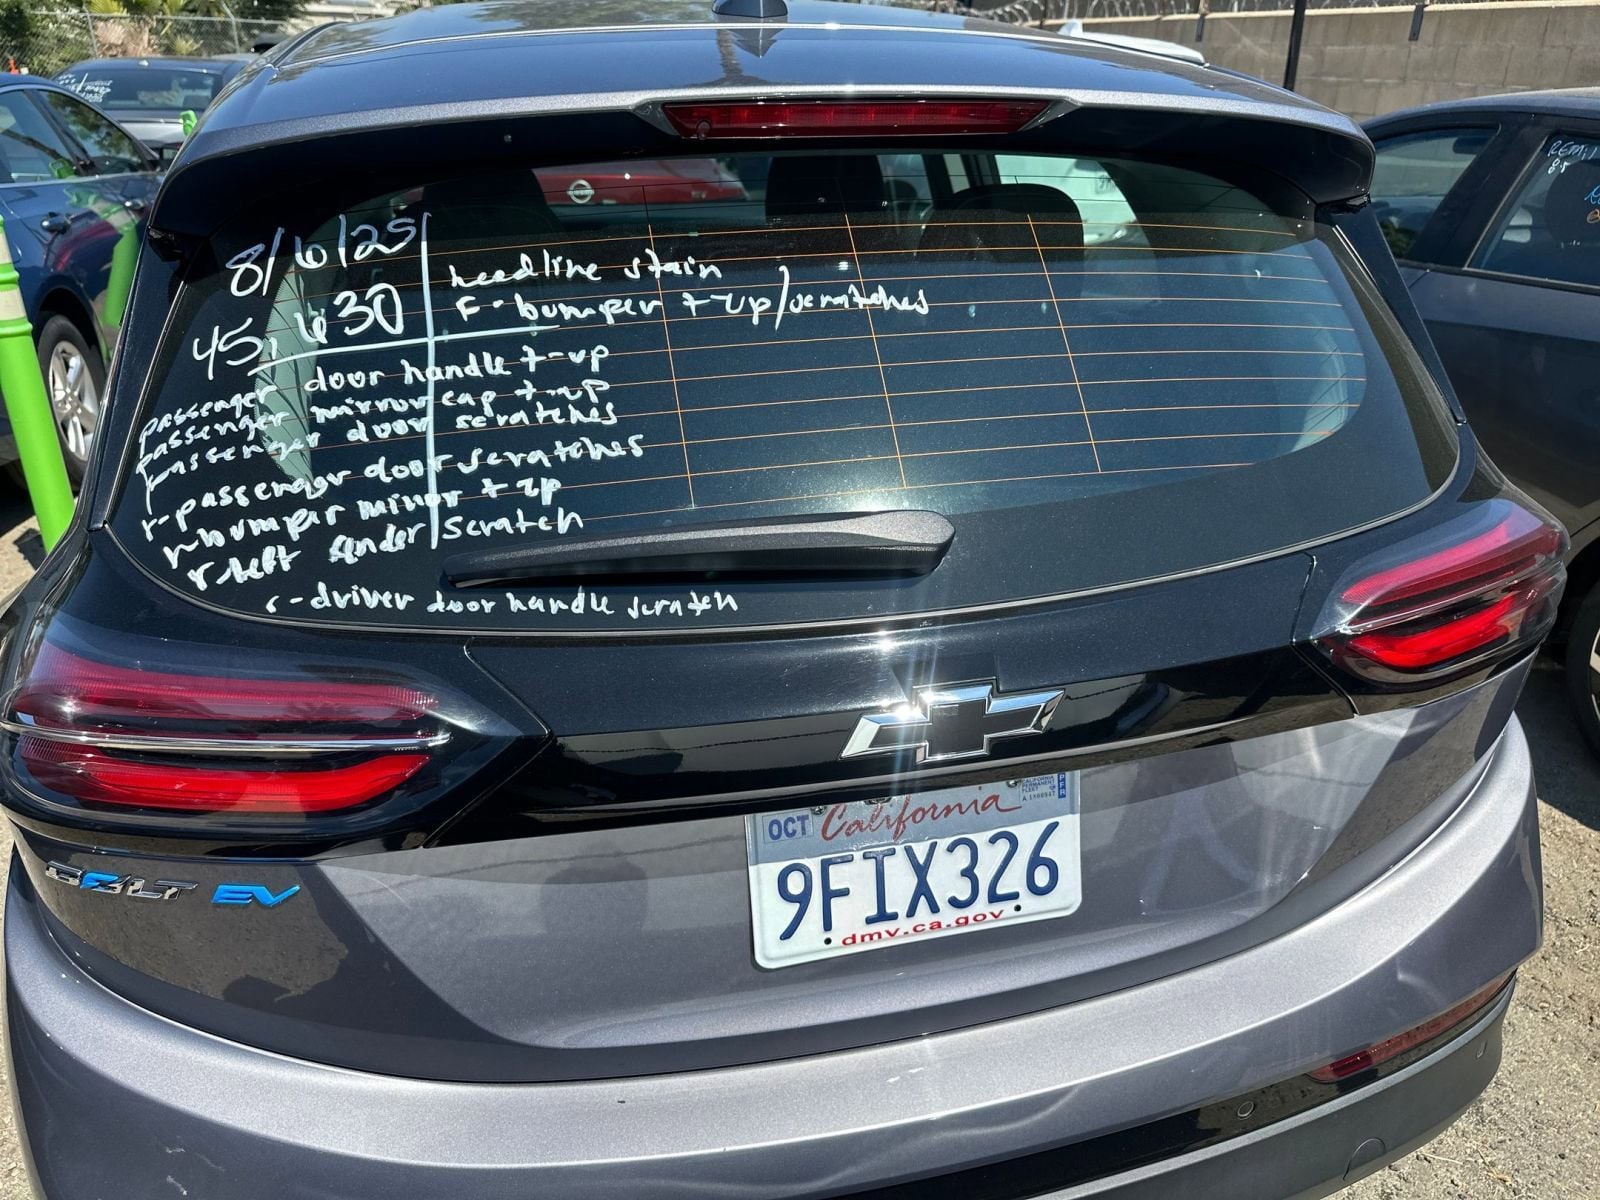 8/6/25
45,630
headline stain
F-bumper t-up/scratches
passenger door handle t-up
passenger mirror cap t-up
passenger door scratches
r-passenger door scratches
r-bumper minor t-up
r left fender scratch
r-driver door handle scratch
BOLT EV
OCT
California
CALIFORNIA
PERMANENT
FLEET
9FIX326
dmv.ca.gov
NISSAN
REMI
8-5